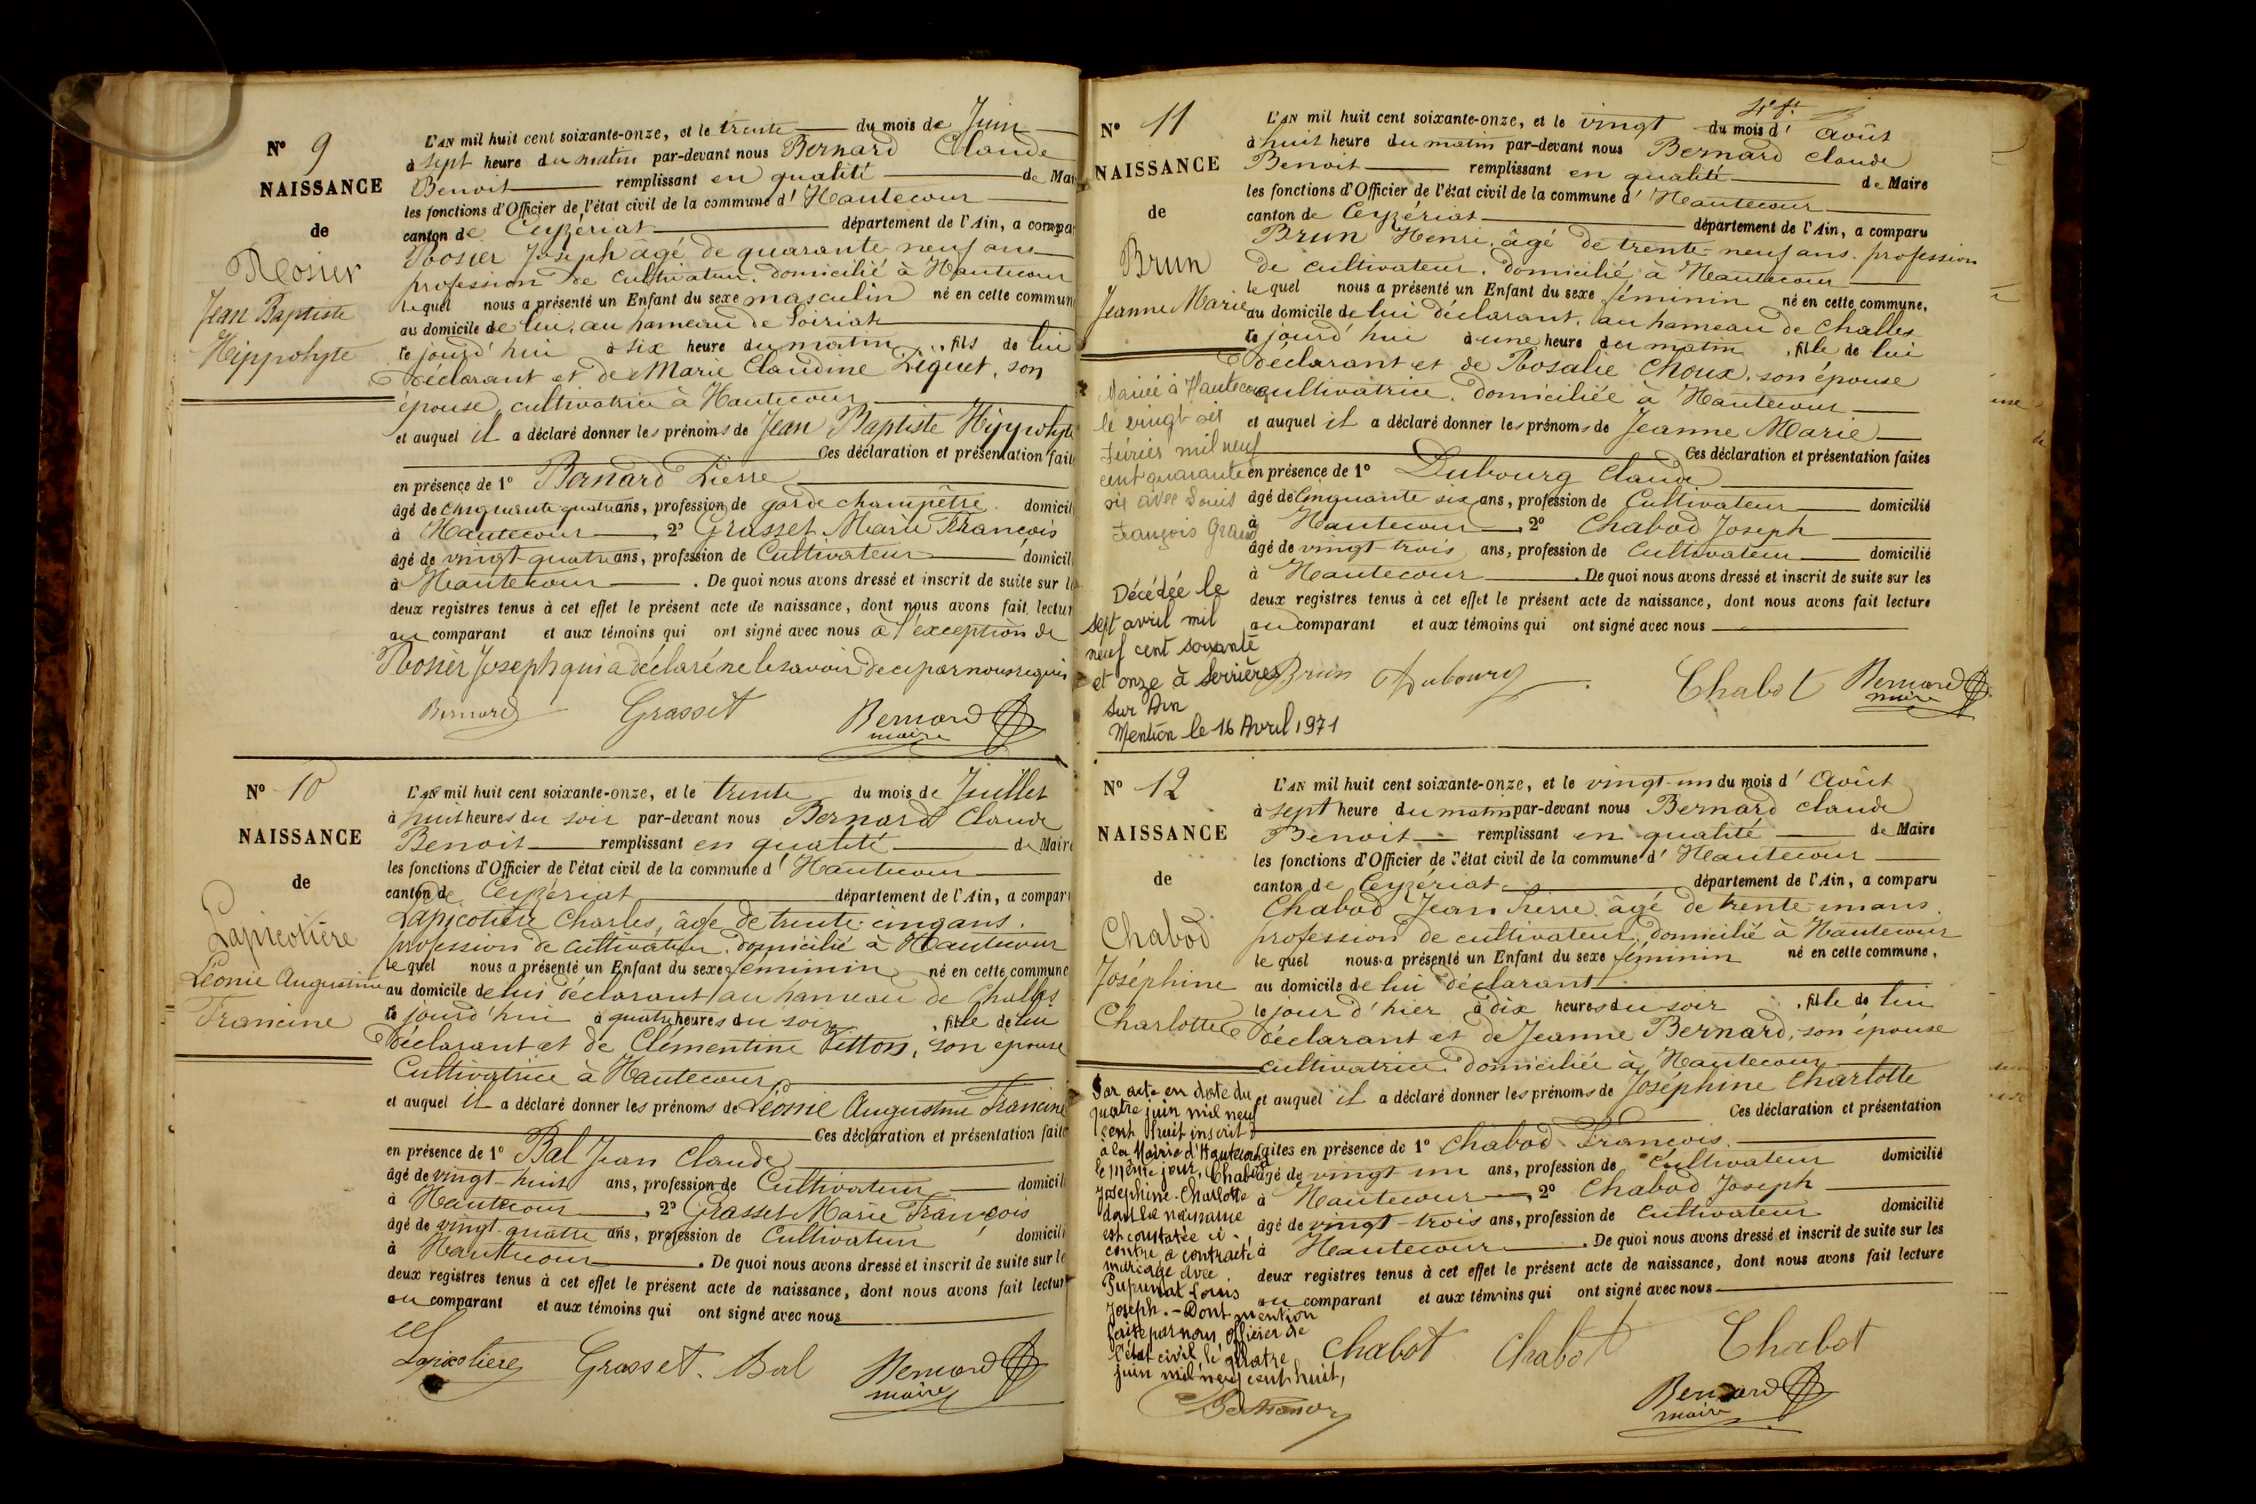 N° 9
NAISSANCE
de
Rosier
Jean Baptiste
Hippolyte
L'AN mil huit cent soixante-onze, et le trente du mois de Juin
à sept heure du matin par-devant nous Bernard Claude
Benoit remplissant en qualité de Mai
les fonctions d'Officier de l'état civil de la commune d' Hautecour
canton de Ceyzériat département de l'Ain, a compa
Rosier Joseph âgé de quarante-neuf ans
profession de cultivateur. domicilié à Hautecour
lequel nous a présenté un Enfant du sexe masculin né en cette commun
au domicile de lui, au hameau de Soiriat
ce jourd'hui à six heure du matin, fils de lui
déclarant et de Marie Claudine Piquet, son
épouse, cultivatrice à Hautecour
et auquel il a déclaré donner les prénoms de Jean Baptiste Hippolyte
Ces déclaration et présentation faite
en présence de 1° Bernard Pierre
âgé de cinquante quatre ans, profession de garde champêtre. domicil
à Hautecour, 2° Grasset Marie François
âgé de vingt-quatre ans, profession de Cultivateur domicil
à Hautecour. De quoi nous avons dressé et inscrit de suite sur l
deux registres tenus à cet effet le présent acte de naissance, dont nous avons fait lectur
au comparant et aux témoins qui ont signé avec nous à l'exception de
Rosier Joseph qui a déclaré ne le savoir de ce par nous requis
Bernard Grasset Bernard
maire
N° 10
NAISSANCE
de
Lapicotière
Léonie Augustine
Francine
L'AN mil huit cent soixante-onze, et le trente du mois de Juillet
à huit heures du soir par-devant nous Bernard Claude
Benoit remplissant en qualité de Maire
les fonctions d'Officier de l'état civil de la commune d' Hautecour
canton de Ceyzériat département de l'Ain, a compar
Lapicotière Charles, âgé de trente-cinq ans.
profession de cultivateur, domicilié à Hautecour
lequel nous a présenté un Enfant du sexe féminin né en cette commune
au domicile de lui déclarant au hameau de Challes
ce jourd'hui à quatre heures du soir, fille de lui
déclarant et de Clémentine Vetton, son épouse
Cultivatrice à Hautecour
et auquel il a déclaré donner les prénoms de Léonie Augustine Francine
Ces déclaration et présentation faite
en présence de 1° Bal Jean Claude
âgé de vingt-huit ans, profession de Cultivateur domicil
à Hautecour, 2° Grasset Marie François
âgé de vingt-quatre ans, profession de Cultivateur domicili
à Hautecour. De quoi nous avons dressé et inscrit de suite sur le
deux registres tenus à cet effet le présent acte de naissance, dont nous avons fait lectur
au comparant et aux témoins qui ont signé avec nous
Lapicotiere Grasset. Bal Bernard
maire
N° 11
NAISSANCE
de
Brun
Jeanne Marie
L'AN mil huit cent soixante-onze, et le vingt du mois d' Août
à huit heure du matin par-devant nous Bernard Claude
Benoit remplissant en qualité de Maire
les fonctions d'Officier de l'état civil de la commune d' Hautecour
canton de Ceyzériat département de l'Ain, a comparu
Brun Henri, âgé de trente-neuf ans. profession
de cultivateur. domicilié à Hautecour
lequel nous a présenté un Enfant du sexe féminin né en cette commune,
au domicile de lui déclarant, au hameau de Challes
ce jourd'hui à une heure du matin, fille de lui
déclarant et de Rosalie Choux, son épouse
cultivatrice. domiciliée à Hautecour
et auquel il a déclaré donner les prénoms de Jeanne Marie
Ces déclaration et présentation faites
en présence de 1° Dubourg Claude
âgé de Cinquante six ans, profession de Cultivateur domicilié
à Hautecour, 2° Chabod Joseph
âgé de vingt-trois ans, profession de Cultivateur domicilié
à Hautecour. De quoi nous avons dressé et inscrit de suite sur les
deux registres tenus à cet effet le présent acte de naissance, dont nous avons fait lecture
au comparant et aux témoins qui ont signé avec nous
Brun Dubourg Chabot Bernard
maire
Mariée à Hautecour
le vingt six
février mil neuf
cent quarante
six avec Louis
François Grand
Décédée le
sept avril mil
neuf cent soixante
et onze à Serrières
sur Ain
Mention le 16 Avril 1971
N° 12
NAISSANCE
de
Chabod
Joséphine
Charlotte
L'AN mil huit cent soixante-onze, et le vingt-un du mois d' Août
à sept heure du matin par-devant nous Bernard Claude
Benoit remplissant en qualité de Maire
les fonctions d'Officier de l'état civil de la commune d' Hautecour
canton de Ceyzériat département de l'Ain, a comparu
Chabod Jean Pierre âgé de trente-un ans.
profession de cultivateur, domicilié à Hautecour
lequel nous a présenté un Enfant du sexe féminin né en cette commune,
au domicile de lui déclarant
le jour d'hier à dix heures du soir, fille de lui
déclarant et de Jeanne Bernard, son épouse
cultivatrice domiciliée à Hautecour
et auquel il a déclaré donner les prénoms de Joséphine Charlotte
Ces déclaration et présentation
faites en présence de 1° Chabod François
âgé de vingt-un ans, profession de Cultivateur domicilié
à Hautecour, 2° Chabod Joseph
âgé de vingt-trois ans, profession de Cultivateur domicilié
à Hautecour. De quoi nous avons dressé et inscrit de suite sur les
deux registres tenus à cet effet le présent acte de naissance, dont nous avons fait lecture
au comparant et aux témoins qui ont signé avec nous
Chabot Chabot Chabot
Bernard
maire
Par acte en date du
quatre juin mil neuf
cent huit inscrit
à la Mairie d'Hautecour
le même jour, Chabod
Joséphine-Charlotte
dont la naissance
est constatée ci-
contre a contracté
mariage avec
Pupunat Louis
Joseph. - Dont mention
faite par nous officier de
l'état civil le quatre
juin mil neuf cent huit,